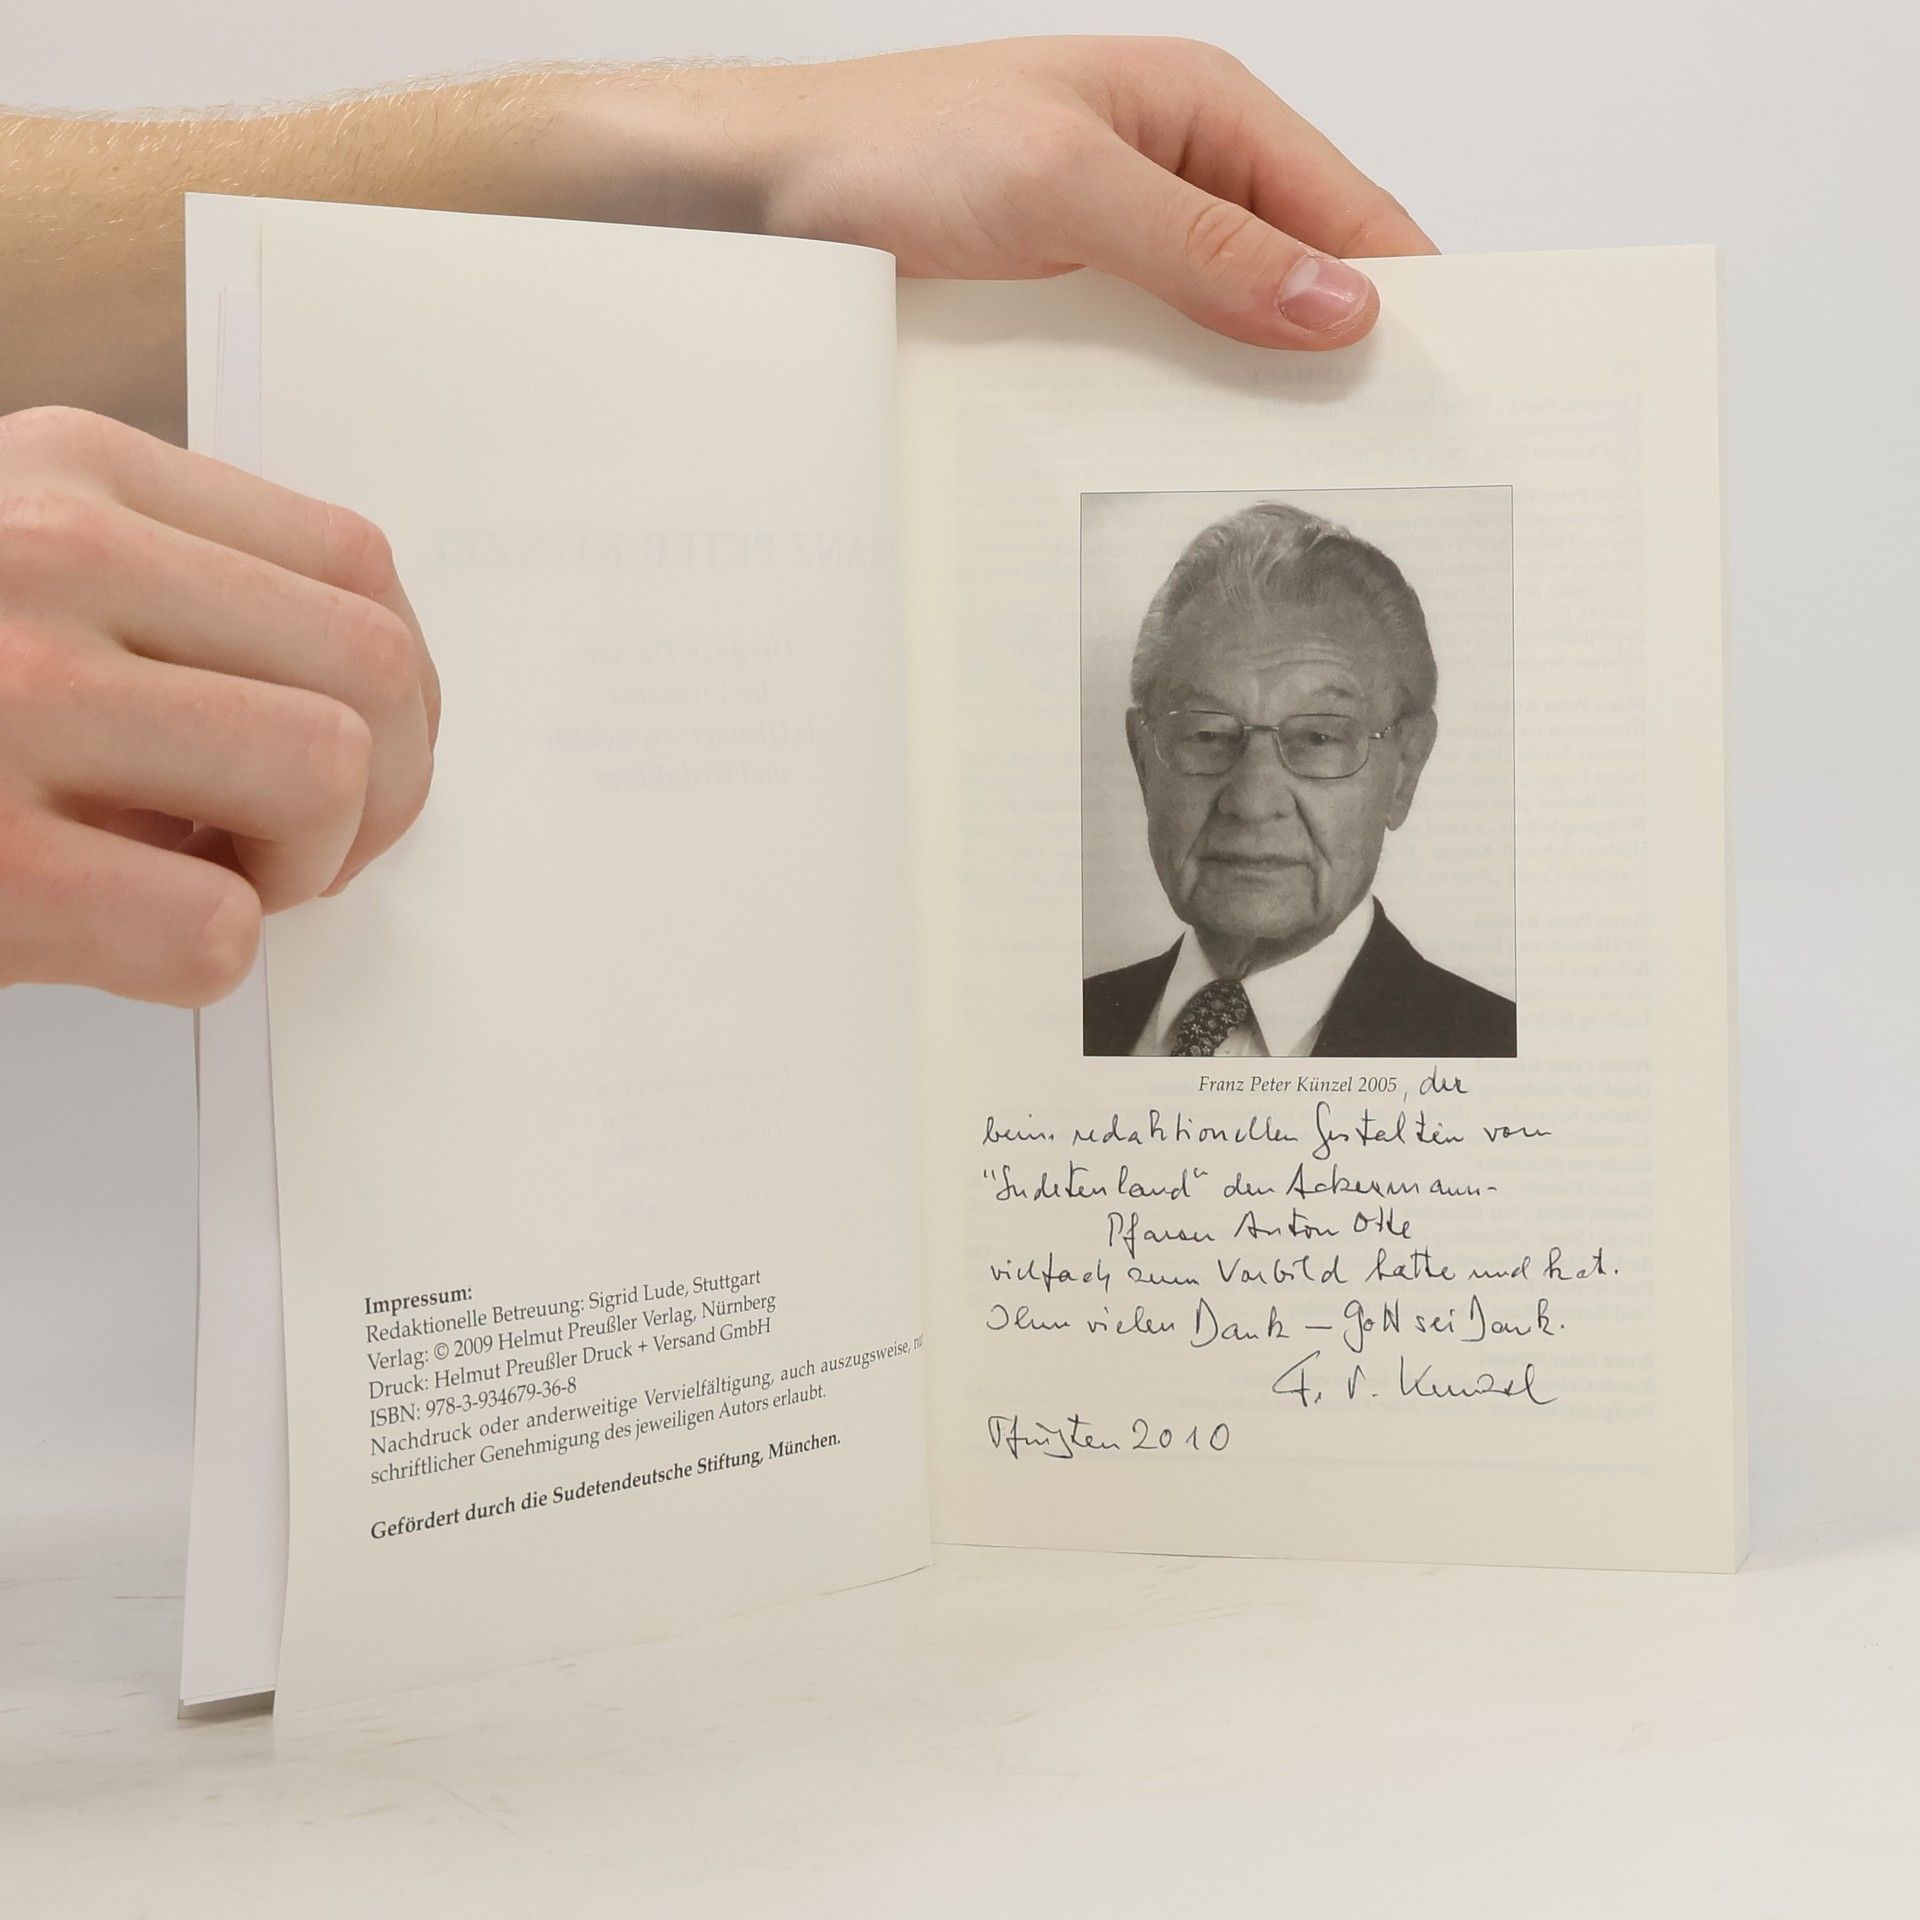 Impressum:
Redaktionelle Betreuung: Sigrid Lude, Stuttgart
Verlag: © 2009 Helmut Preußler Verlag, Nürnberg
Druck: Helmut Preußler Druck + Versand GmbH
ISBN: 978-3-934679-36-8
Nachdruck oder anderweitige Vervielfältigung, auch auszugsweise, nu
schriftlicher Genehmigung des jeweiligen Autors erlaubt.
Gefördert durch die Sudetendeutsche Stiftung, München.
Franz Peter Künzel 2005, der
beim redaktionellen Gestalten vom
"Sudetenland" den Ackermann-
Pfarrer Anton Otte
vielfach zum Vorbild hatte und hat.
Ihm vielen Dank – Gott sei Dank.
F. P. Künzel
Pfingsten 2010